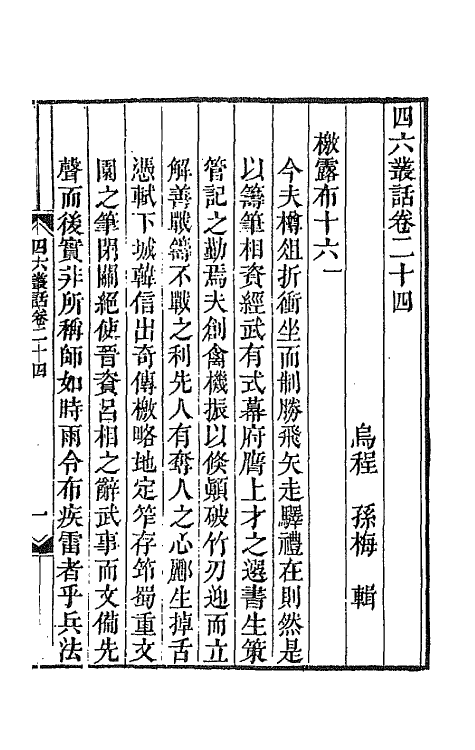 四六叢話卷二十四
烏程　孫梅　輯
檄露布十六一
今夫樽俎折衝坐而制勝飛矢走驛禮在則然是
以籌筆相資經武有式幕府膺上才之選書生策
管記之勤焉夫創禽機振以倏顚破竹刃迎而立
解善戰籌不戰之利先人有奪人之心酈生掉舌
憑軾下城韓信出奇傳檄略地定笮存筇蜀重文
園之筆閉關絕使晉資呂相之辭武事而文備先
聲而後實非所稱師如時雨令布疾雷者乎兵法
四六叢話卷二十四
一